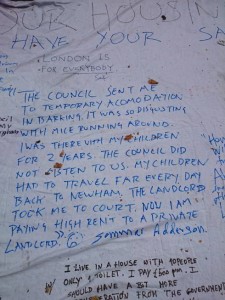 OUR HOUSING
HAVE YOUR SA
LONDON IS
FOR EVERYBODY
THE COUNCIL SENT ME
TO TEMPORARY ACOMODATION
IN BARKING. IT WAS SO DISGUSTING
WITH MICE RUNNING AROUND.
I WAS THERE WITH MY CHILDREN
FOR 2 YEARS. THE COUNCIL DID
NOT LISTEN TO US. MY CHILDREN
HAD TO TRAVEL FAR EVERY DAY
BACK TO NEWHAM. THE LANDLORD
TOOK ME TO COURT. NOW I AM
PAYING HIGH RENT TO A PRIVATE
LANDLORD.
I LIVE IN A HOUSE WITH 10 PEOPLE
W/ ONLY 1 TOILET. I PAY £600 pm. I
SHOULD HAVE A BIT MORE
FROM THE GOVERNMENT